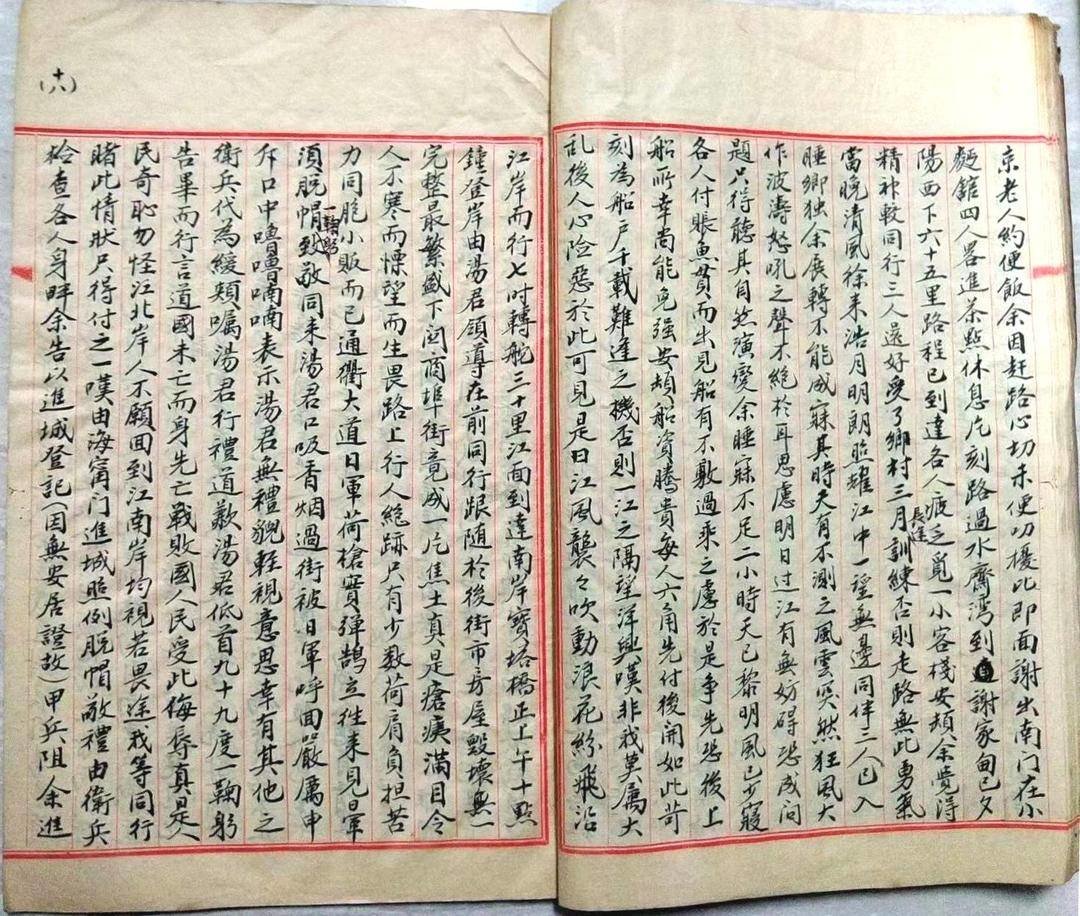 京老人約便飯余因赶路心切未便叨擾比即面謝出南门在小
麵館四人畧進茶點休息片刻路過水齊灣到謝家甸已夕
陽西下六十五里路程已到達各人疲乏覓一小客棧安頓余覺得
精神較同行三人還好受了鄉村三月長途訓練否則走路無此勇氣
當晚清風徐来浩月明朗照耀江中一望無邊同伴三人已入
睡鄉独余展轉不能成寐其時天有不測之風雲突然狂風大
作波濤怒吼之聲不絕於耳思慮明日过江有無妨碍恐成问
題只得聽其自然演變余睡寐不足二小時天已黎明風已少寢
各人付賬魚貫而出見船有不敷過乘之慮於是争先恐後上
船所幸尚能免强安頓船資騰貴每人六角先付後開如此苛
刻為船户千載難逢之機否則一江之隔望洋興嘆非我莫属大
乱後人心险惡於此可見是日江风襲々吹動浪花紛飛沿
江岸而行七吋轉舵三十里江面到達南岸寶塔橋正上午十點
鐘登岸由湯君領導在前同行跟随於後街市房屋毀壞無一
完整最繁盛下関商埠街竟成一片焦土真是瘡痍滿目令
人不寒而慄望而生畏路上行人絶跡只有少数荷肩負担苦
力同胞小販而已通衢大道日軍荷槍實弹鹄立往来見日軍
須脱帽一鞠躬致敬同来湯君口吸香烟過街被日軍呼面嚴厲申
斥口中嚕嚕喃喃表示湯君無禮貌軽視意思幸有其他之
衛兵代為緩頰嘱湯君行禮道歉湯君低首九十九度一鞠躬
告畢而行言道國未亡而身先亡戰敗國人民受此侮辱真是人
民奇恥勿怪江北岸人不願回到江南岸均視若畏途我等同行
睹此情狀只得付之一嘆由海甯门進城照例脱帽敬禮由衛兵
检查各人身畔余告以進城登記(因無安居證故)甲兵阻余進
(十六)